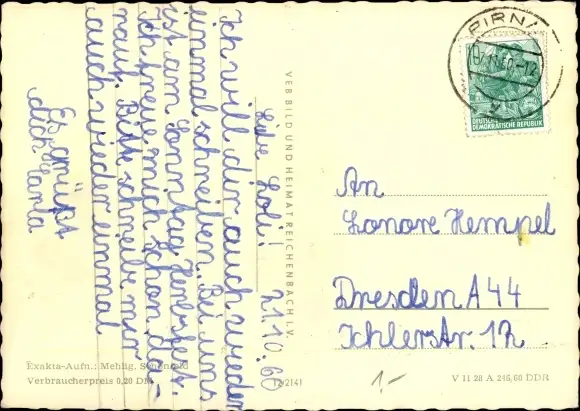 Liebe Loli! 21.10.60
Ich will dir auch wieder
einmal schreiben. Bei uns
ist am Sonntag Herbstfest.
Ich freue mich schon da-
rauf. Bitte schreibe mir
auch wieder einmal
Es grüßt
dich Carla
VEB BILD UND HEIMAT REICHENBACH I. V.
PIRNA
DEUTSCHE
DEMOKRATISCHE REPUBLIK
An
Lonore Hempel
Dresden A 44
Exakta-Aufn.: Mehlig,
Verbraucherpreis 0,20 DM
12/2141
1,-
V 11 28 A 246/60 DDR